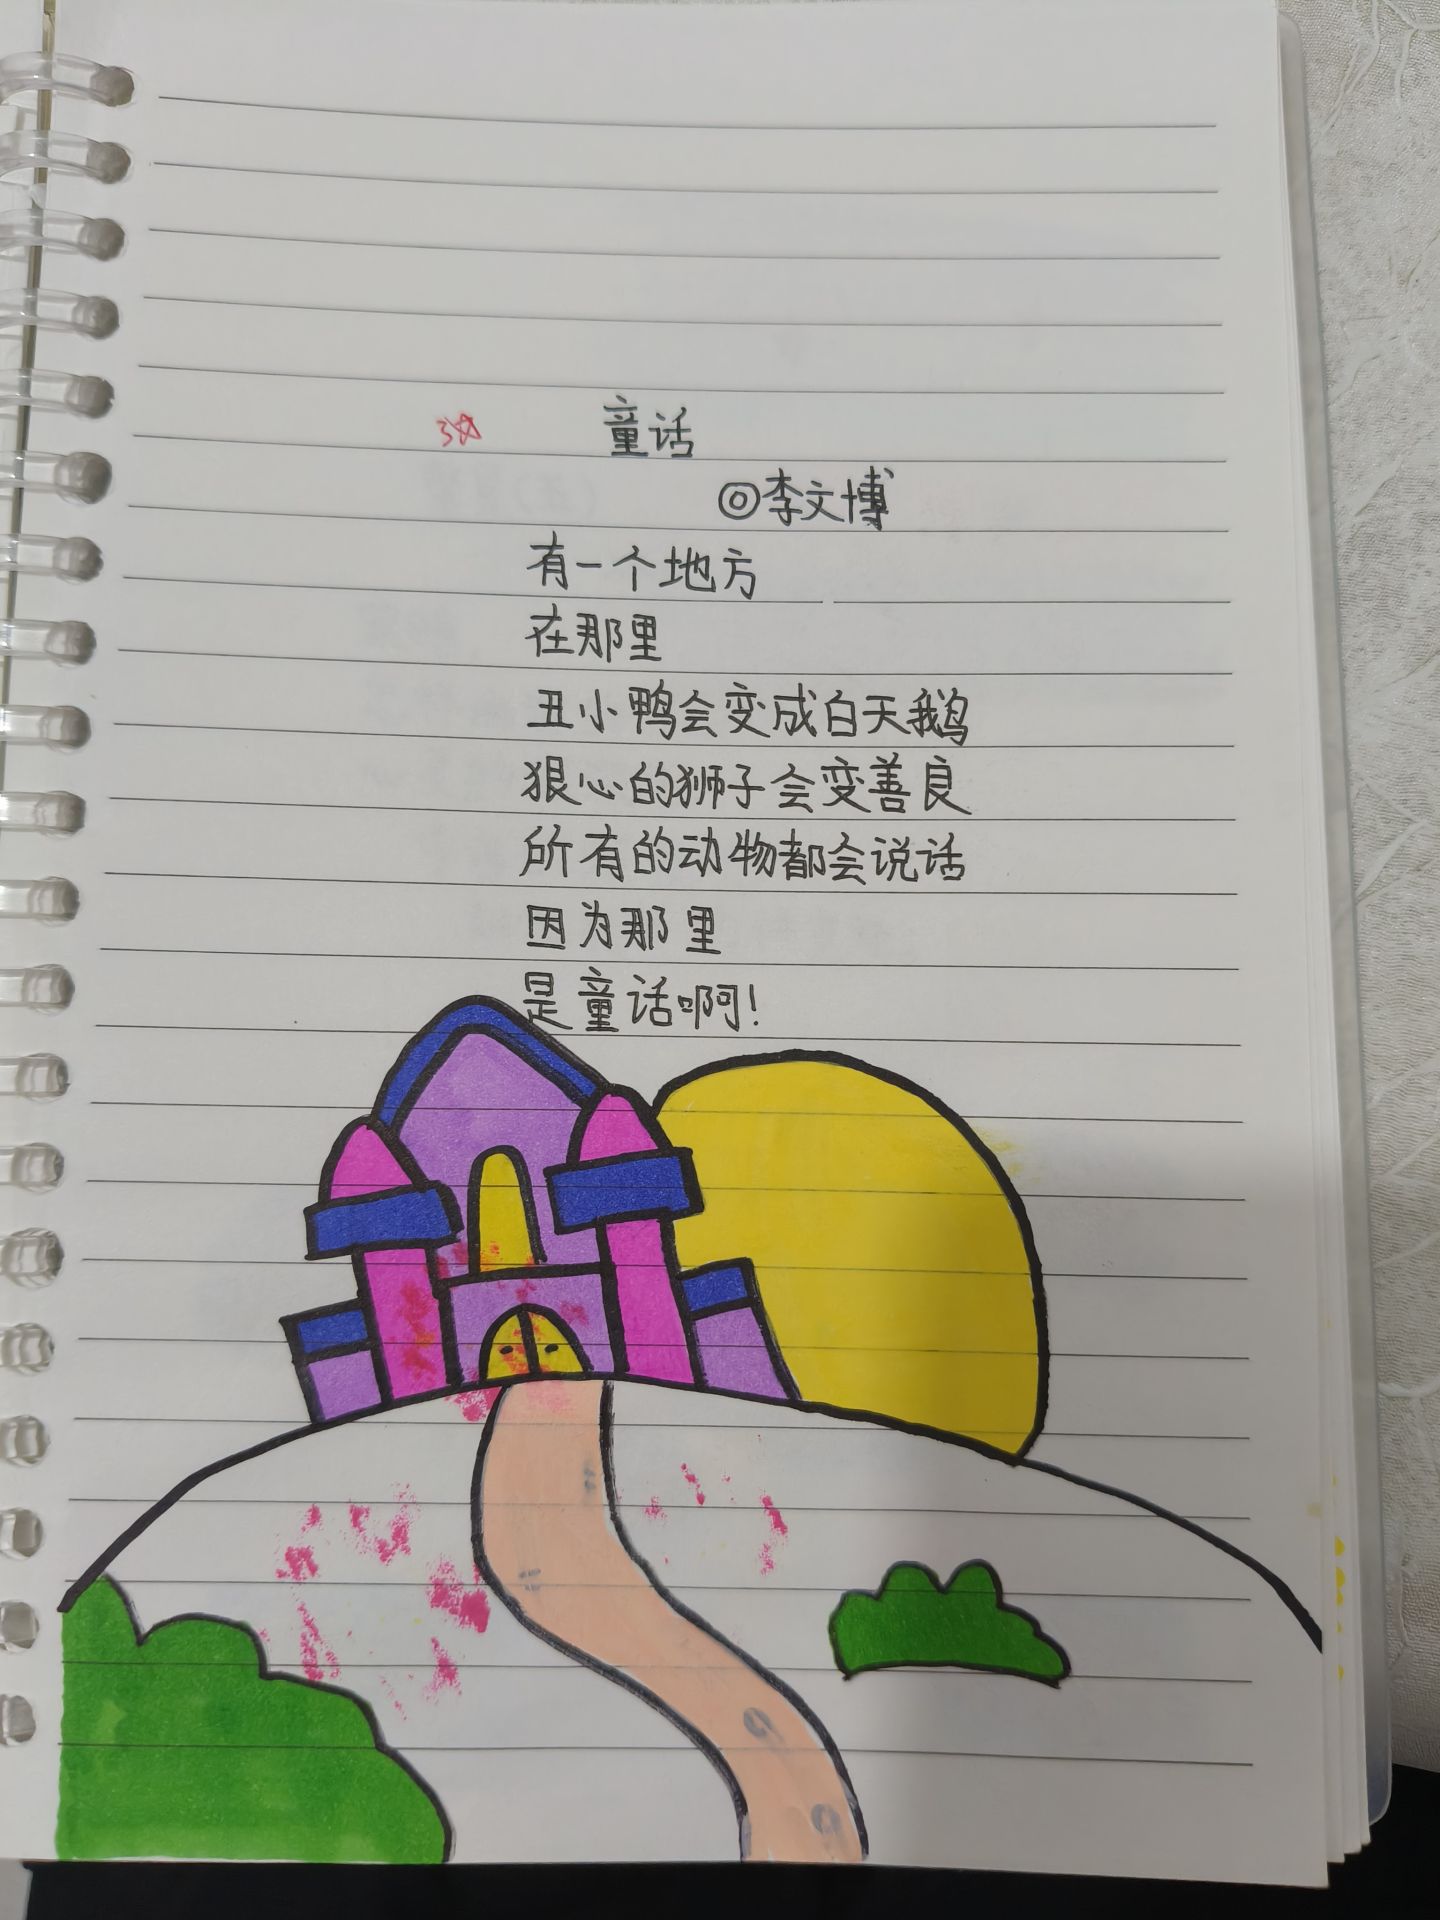 3☆ 童话
◎李文博
有一个地方
在那里
丑小鸭会变成白天鹅
狠心的狮子会变善良
所有的动物都会说话
因为那里
是童话啊!